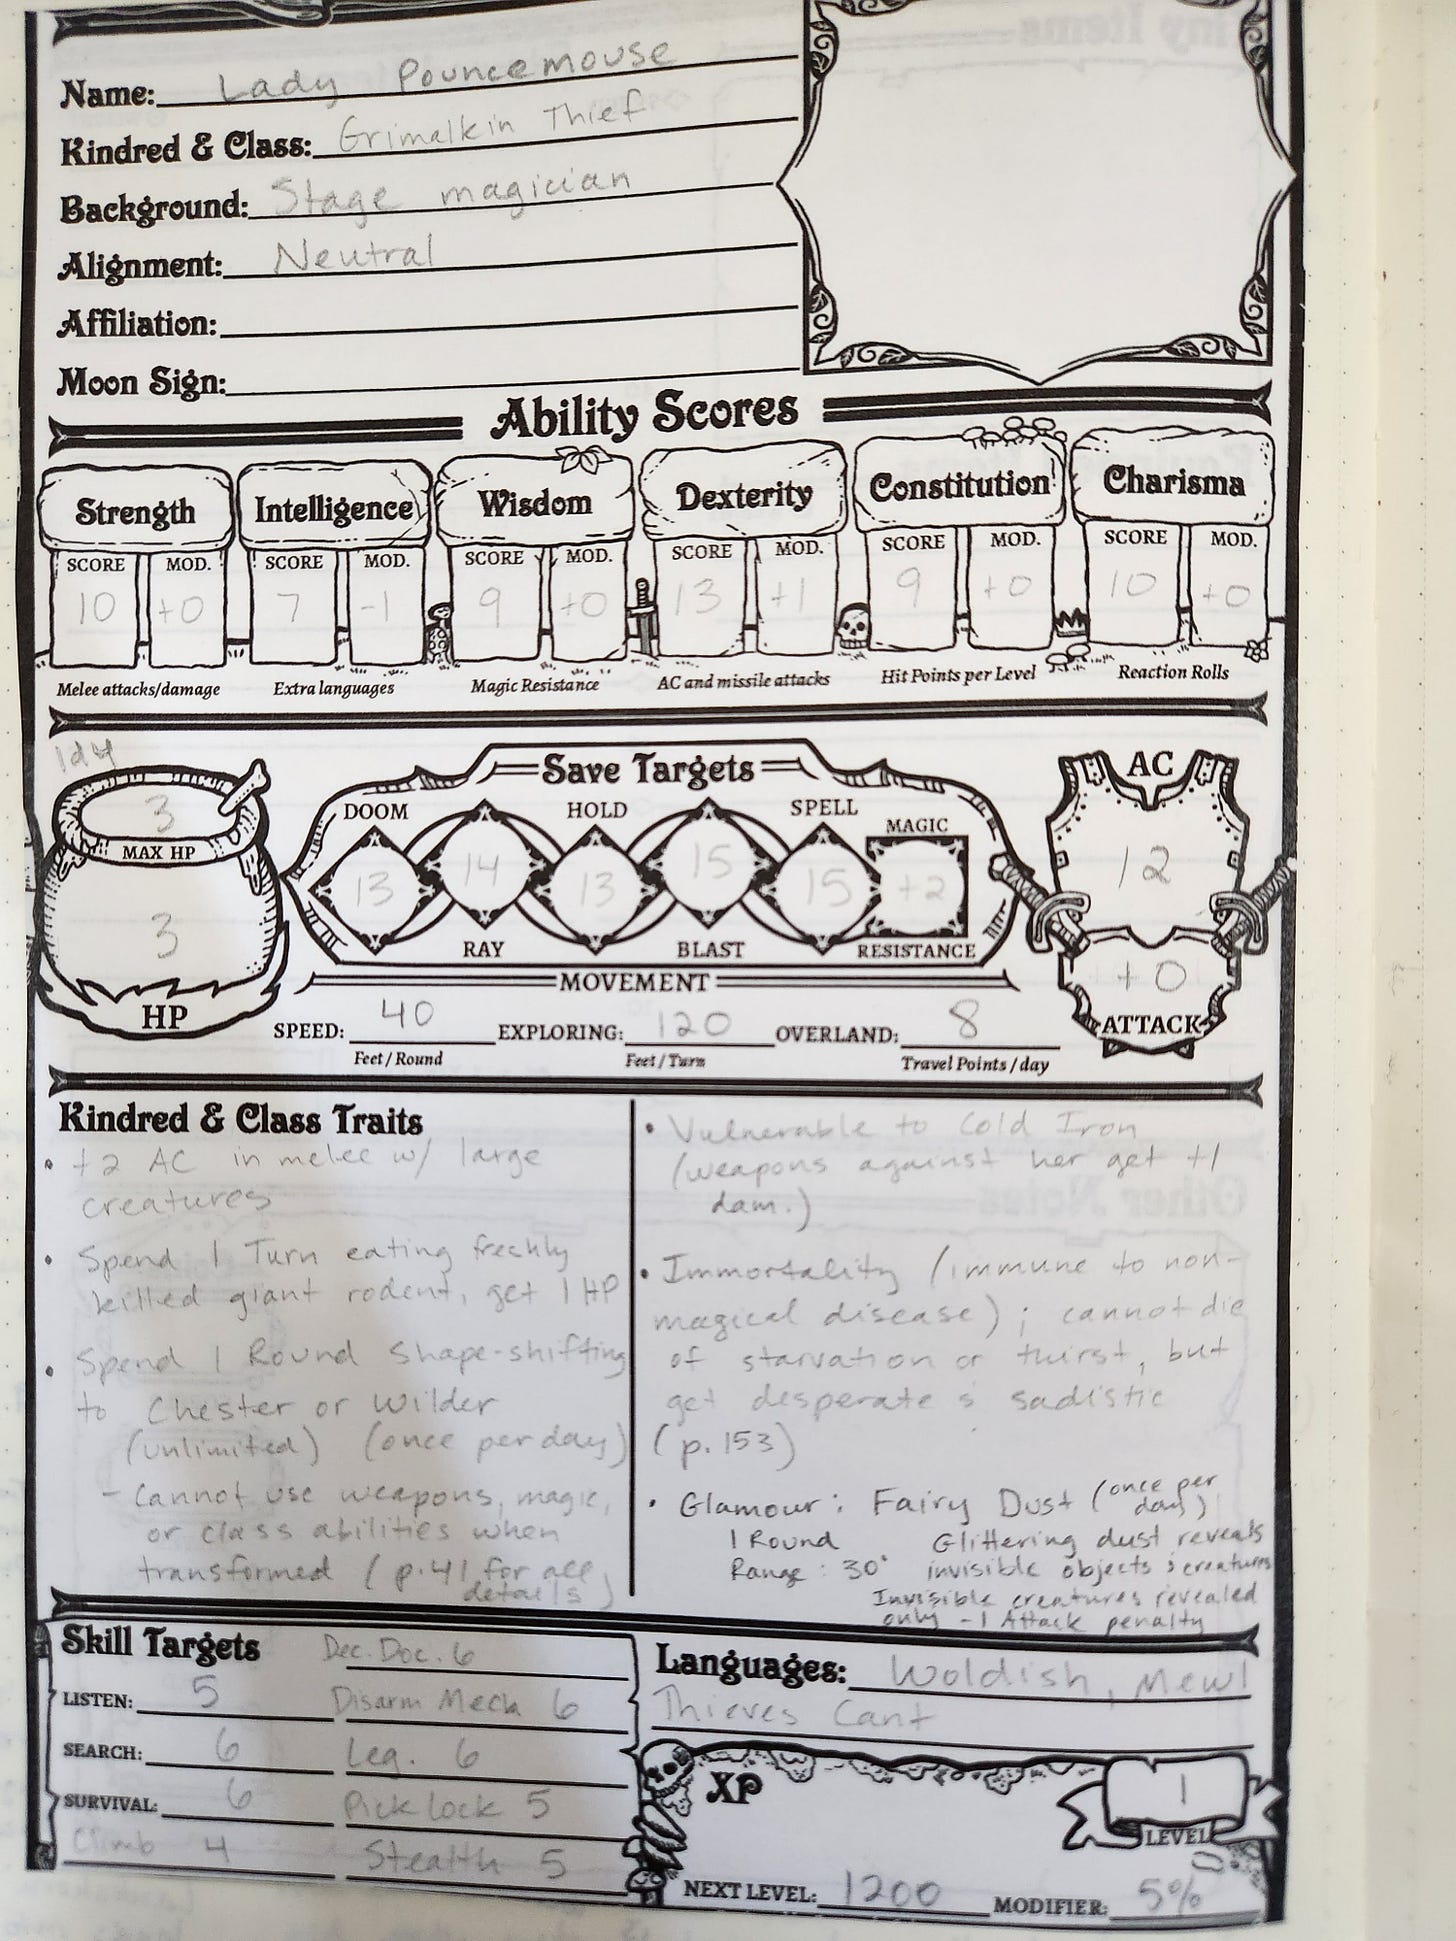 Name: Lady Pouncemouse
Kindred & Class: Grimalkin Thief
Background: Stage magician
Alignment: Neutral
Affiliation:
Moon Sign:
Ability Scores
Strength Intelligence Wisdom Dexterity Constitution Charisma
SCORE MOD. SCORE MOD. SCORE MOD. SCORE MOD. SCORE MOD. SCORE MOD.
10 +0 7 -1 9 +0 13 +1 9 +0 10 +0
Melee attacks/damage Extra languages Magic Resistance AC and missile attacks Hit Points per Level Reaction Rolls
1d4
3
MAX HP
3
HP
Save Targets
DOOM HOLD SPELL MAGIC
13 14 13 15 15 +2
RAY BLAST RESISTANCE
AC
12
+0
ATTACK
MOVEMENT
SPEED: 40 EXPLORING: 120 OVERLAND: 8
Feet / Round Feet / Turn Travel Points / day
Kindred & Class Traits
• +2 AC in melee w/ large
creatures
• Spend 1 Turn eating freshly
killed giant rodent, get 1 HP
• Spend 1 Round shape-shifting
to Chester or Wilder
(unlimited) (once per day)
- Cannot use weapons, magic,
or class abilities when
transformed (p.41 for all
details)
• Vulnerable to Cold Iron
(weapons against her get +1
dam.)
• Immortality (immune to non-
magical disease); cannot die
of starvation or thirst, but
get desperate & sadistic
(p.153)
• Glamour: Fairy Dust (once per
day)
1 Round Glittering dust reveals
Range: 30' invisible objects & creatures
Invisible creatures revealed
only -1 Attack penalty
Skill Targets Dec. Doc. 6
LISTEN: 5 Disarm Mech 6
SEARCH: 6 Leg. 6
SURVIVAL: 6 Pick lock 5
Climb 4 Stealth 5
Languages: Woldish, Mewl
Thieves Cant
XP
1
LEVEL
NEXT LEVEL: 1200 MODIFIER: 5%